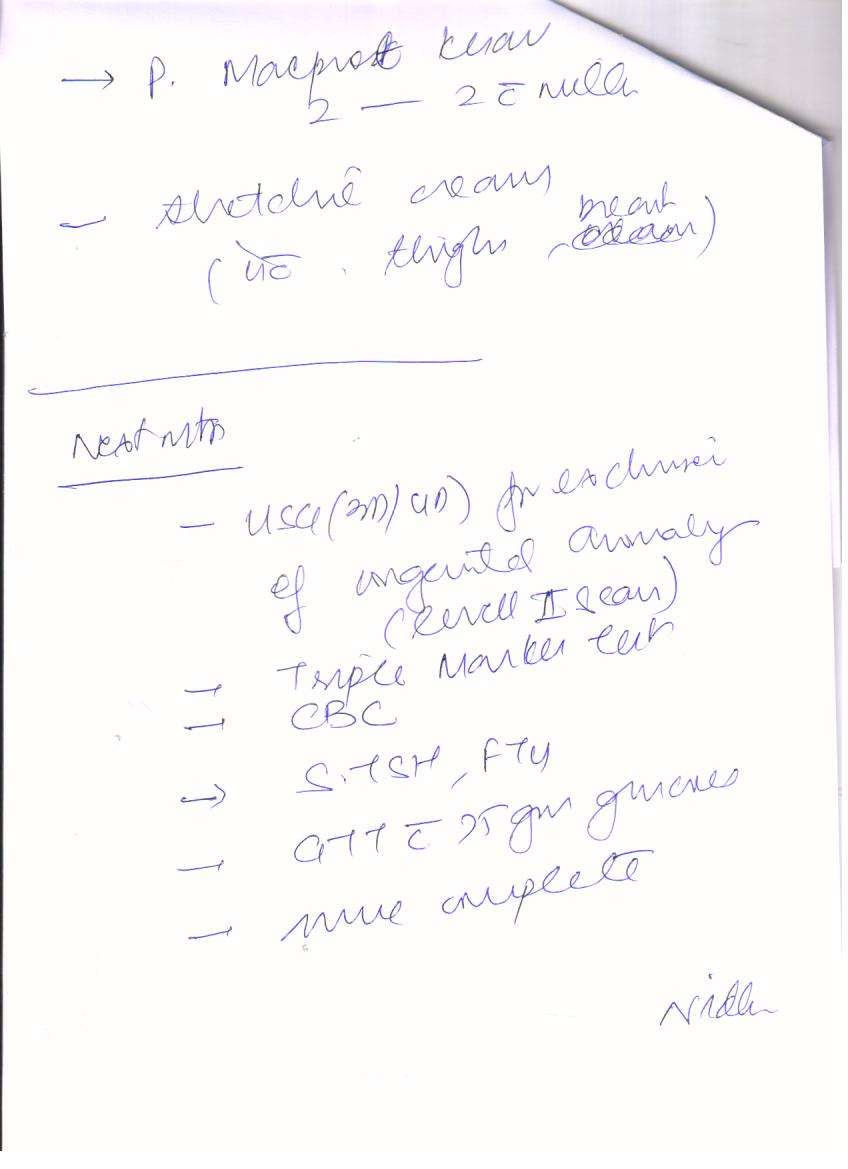 → P. Macprot Kesar
2 — 2 c̄ milk
— stretchnil cream
( thighs, breast )
Next mth
— USG (3D/4D) for exclusion
of congenital anomaly
(Level II Scan)
→ Triple Marker test
→ CBC
→ S. TSH, FT4
— GTT c̄ 75 gm glucose
— urine complete
Nidhi